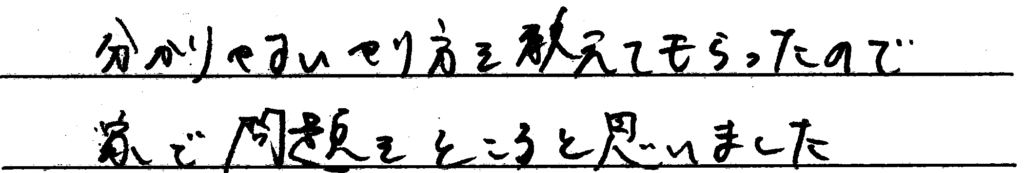 分かりやすいやり方を教えてもらったので
家で問題をところと思いました